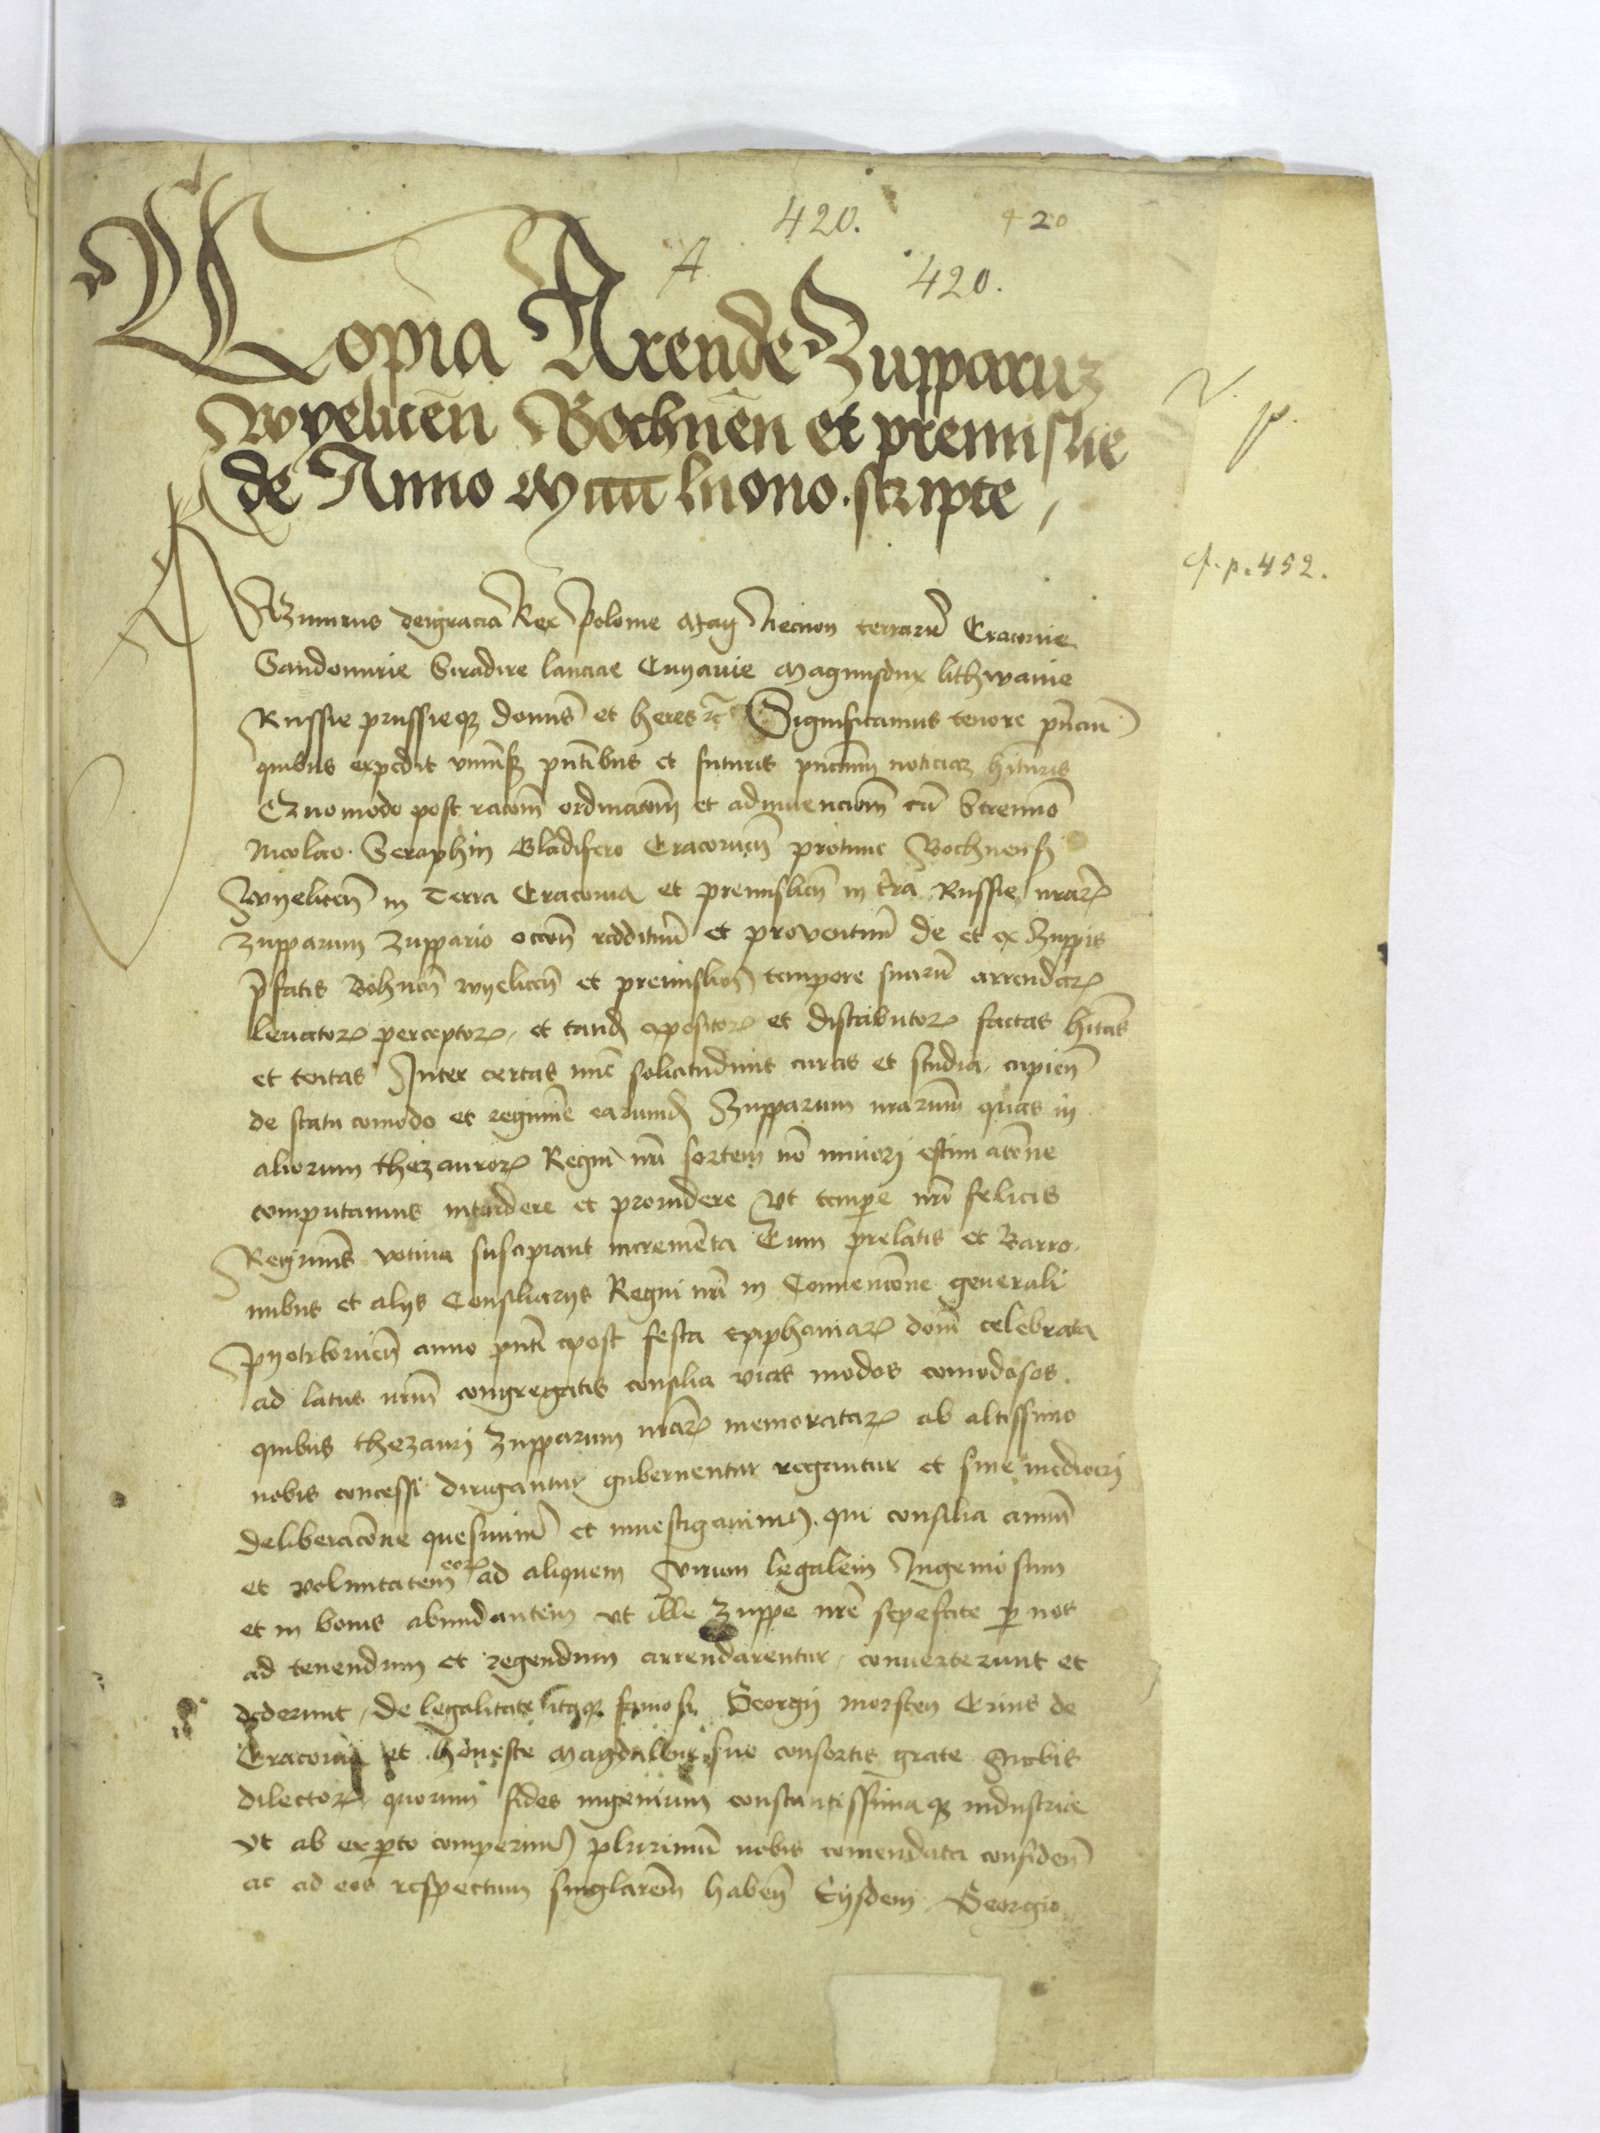 420. 420
A 420.
Copia Arende Zupparuz
Wyelicen Bochnen et premislie
de Anno Mcccc lnono scripte
V. p.
cf. p. 452.
Kazimirus deigracia Rex Polonie Necnon terraru Cracovie
Sandomirie Siradie lancicie Cuyavie Magnusdux lithwanie
Russie prussieq dominus et heres rc Significamus tenore pncium
quibus expedit pntibus et futuris noticiaz hituris
Quomodo post racom ordinacom et adinvenciom cu Strenuo
Nicolao Seraphin Gladifero Cracovien protunc Bochnensi
Wyelicen in Terra Cracovia et premislien in tra Russie nrar
Zupparum Zuppario occon reddituu et proventuu de et ex Zuppis
pfatis Bohnen wyelicen et premislien tempore suaru arrendar
levator perceptor et tand expositor et distributor factas hitas
et tentas Inter certas solicitudinis curas et studia cupien
de statu comodo et regimine earumd Zupparum nrarum quas in
aliorum thezauror Regni nri sortem no minori estimacone
computamus intendere et providere Vt tempore nri felicis
Regiminis votiva suscipiant incrementa Cum prelatis et Barro
nibus et alys Consiliarys Regni nri in Convencone generali
Pyotrkovien anno pnti post festa epiphaniar domi celebrata
ad latus nrum congregatis consilia vias modos comodosos
quibus thezauri Zupparum nrar memoratar ab altissimo
nobis concessi dirigantur gubernentur regantur et sine mediocri
deliberacone quesivim et investigavim qui consilia animu
et voluntatem eor ad aliquem virum legalem Ingeniosum
et in bonis abundantem vt ille Zuppe nre sepefate p nos
ad tenendum et regendum arrendarentur converterunt et
dederunt de legalitate itaq famosi Georgy morsten Civis de
Cracovia et honeste Magdalene sue consortis grate nobis
dilector quorum fides ingenium constantissimaq industria
Vt ab experto comperim plurimu nobis comendata confiden
ac ad eos respectum singlarem haben Eysdem Georgio